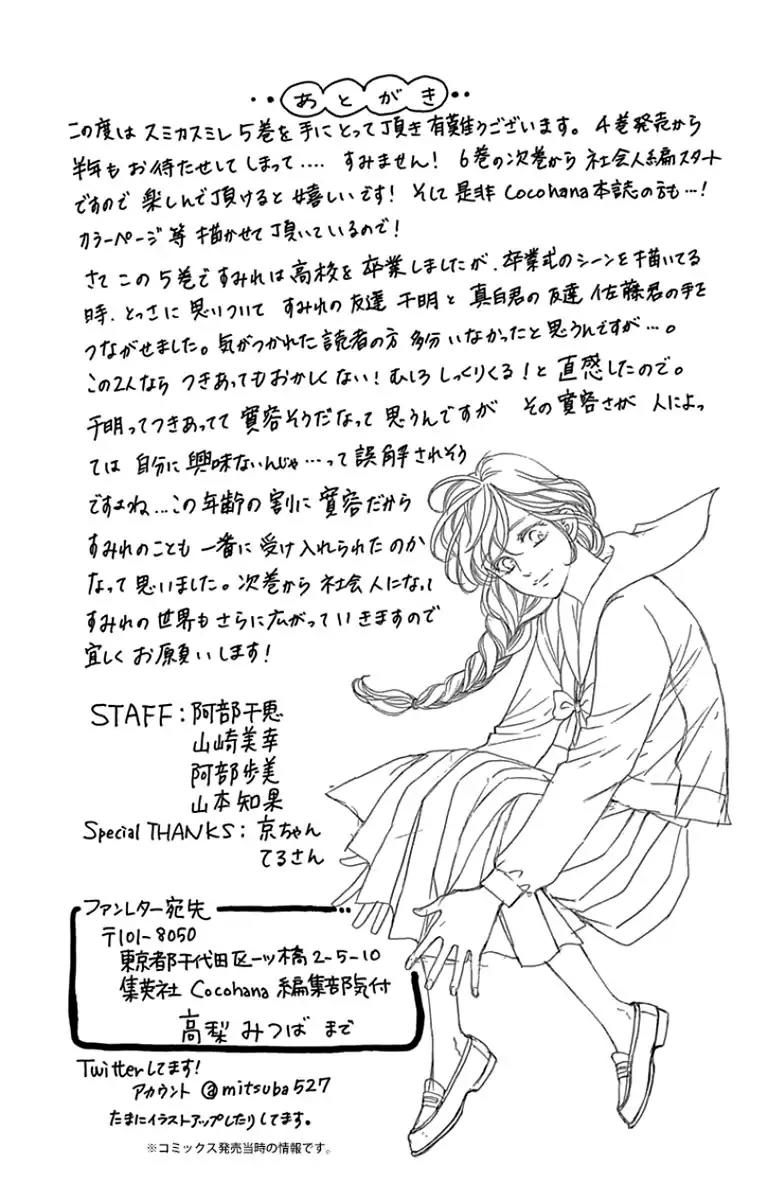 ‥あとがき‥
この度は スミカスミレ5巻を手にとって頂き有難うございます。4巻発売から
半年もお待たせしてしまって‥‥ すみません! 6巻の次巻から社会人編スタート
ですので楽しんで頂けると嬉しいです! そして是非Cocohana本誌の方も…!
カラーページ等描かせて頂いているので!
さてこの5巻ですみれは高校を卒業しましたが、卒業式のシーンを描いてる
時、とっさに思いついてすみれの友達 千明と真白君の友達 佐藤君の手を
つながせました。気がつかれた読者の方 多分いなかったと思うんですが…。
この2人なら つきあってもおかしくない! むしろしっくりくる!と直感したので。
千明ってつきあってて寛容そうだなって思うんですが その寛容さが 人によっ
ては 自分に興味ないんじゃ…って誤解されそう
ですよね…この年齢の割に寛容だから
すみれのことも 一番に受け入れられたのか
なって思いました。次巻から社会人になって
すみれの世界もさらに広がっていきますので
宜しくお願いします!
STAFF:阿部千恵
山崎美幸
阿部歩美
山本知果
Special THANKS:京ちゃん
てるさん
ファンレター宛先
〒101-8050
東京都千代田区一ツ橋2-5-10
集英社 Cocohana 編集部気付
高梨みつば まで
Twitterしてます!
アカウント @mitsuba527
たまにイラストアップしたりしてます。
※コミックス発売当時の情報です。